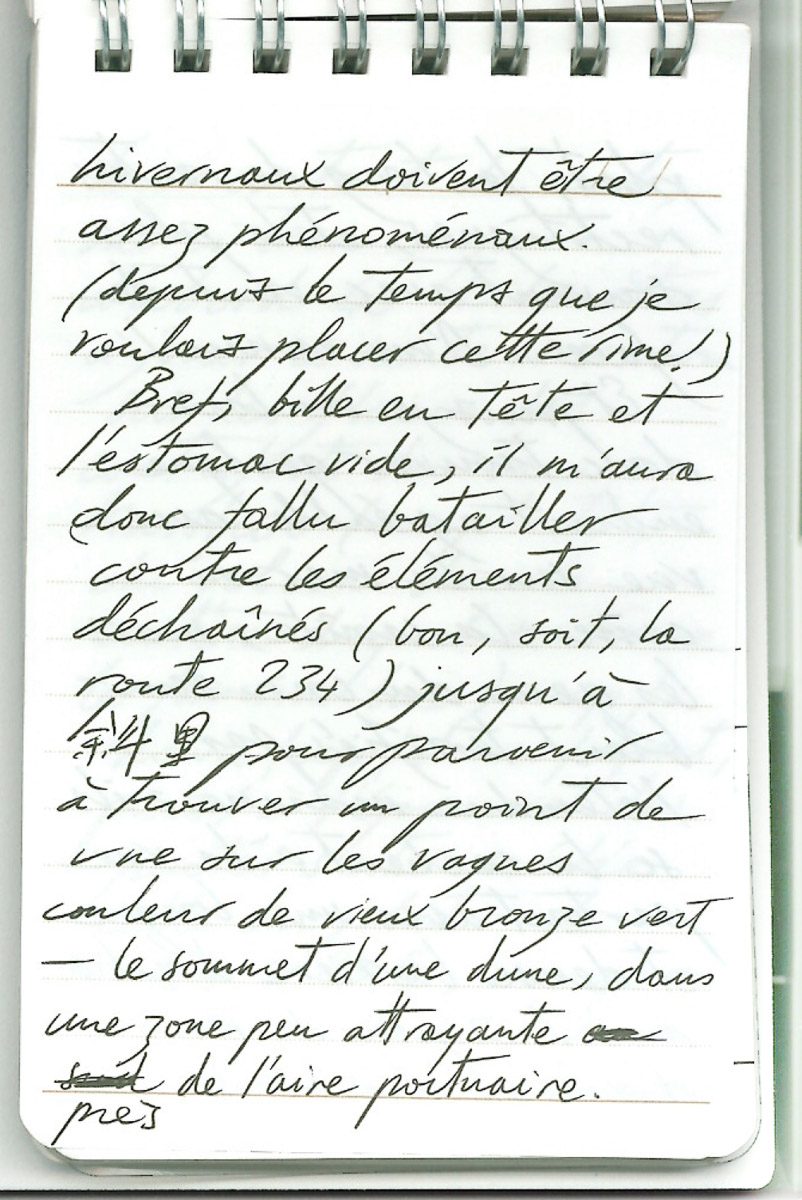 hivernaux doivent être
assez phénoménaux.
(depuis le temps que je
voulais placer cette rime!)
Bref, bille en tête et
l'estomac vide, il m'aura
donc fallu batailler
contre les éléments
déchaînés (bon, soit, la
route 234) jusqu'à
斜里 pour parvenir
à trouver un point de
vue sur les vagues
couleur de vieux bronze vert
— le sommet d'une dune, dans
une zone peu attrayante
de l'aire portuaire.
près